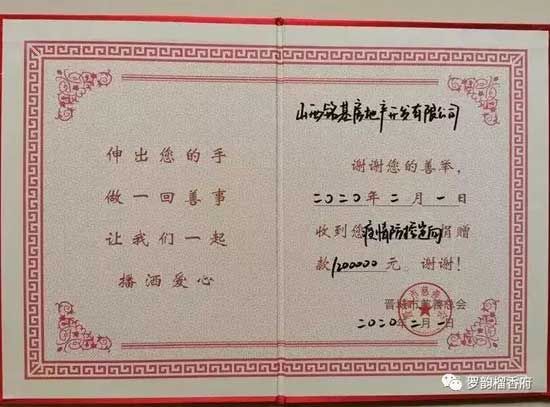 伸出您的手
做一回善事
让我们一起
播洒爱心
山西铭基房地产开发有限公司
谢谢您的善举,
二〇二〇年二月一日
收到您疫情防控定向捐赠
款1200000元。谢谢!
晋城市慈善总会
二〇二〇年二月一日
罗韵榴香府